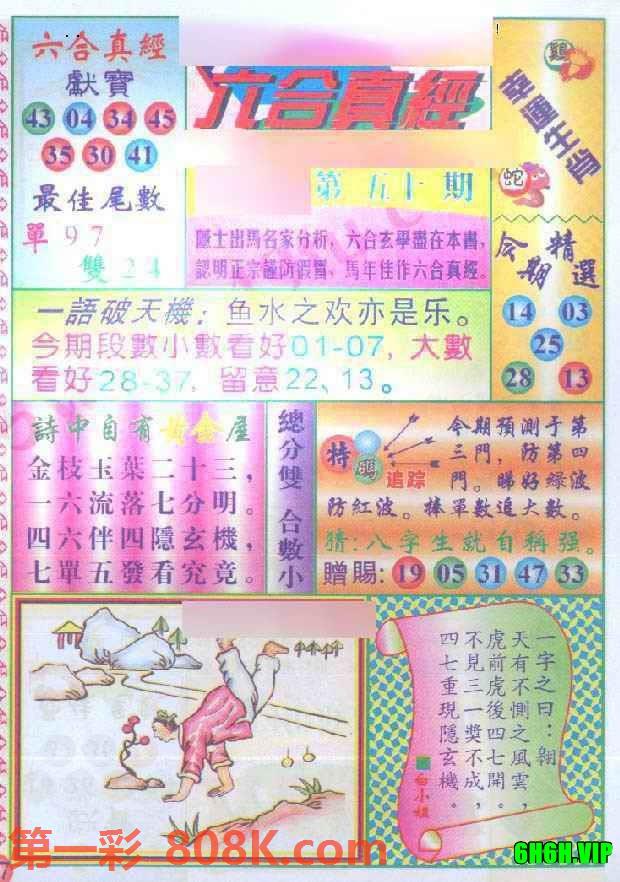 六合真經
獻寶
43 04 34 45
35 30 41
最佳尾數
單 9 7
雙 2 4
六合真經
第五十期
隱士出馬名家分析，六合玄學盡在本書，
認明正宗謹防假冒，馬年佳作六合真經。
幸運生肖
蛇
今期精選
14 03
25
28 13
一語破天機：鱼水之欢亦是乐。
今期段數小數看好01-07，大數
看好28-37，留意22、13。
詩中自有黃金屋
金枝玉葉二十三，
一六流落七分明。
四六伴四隱玄機，
七單五發看究竟。
總分雙 合數小
特碼追踪
今期預測于第
三門，防第四
門。睇好绿波
防紅波。棒單數追大數。
猜：八字生就自稱强。
贈賜：19 05 31 47 33
一字之曰：翱
天有不惻之風雲，
虎前虎後四七開。
不見三一獎不成，
四七重現隱玄機。
白小姐
第一彩 808K.com
6H6H.VIP